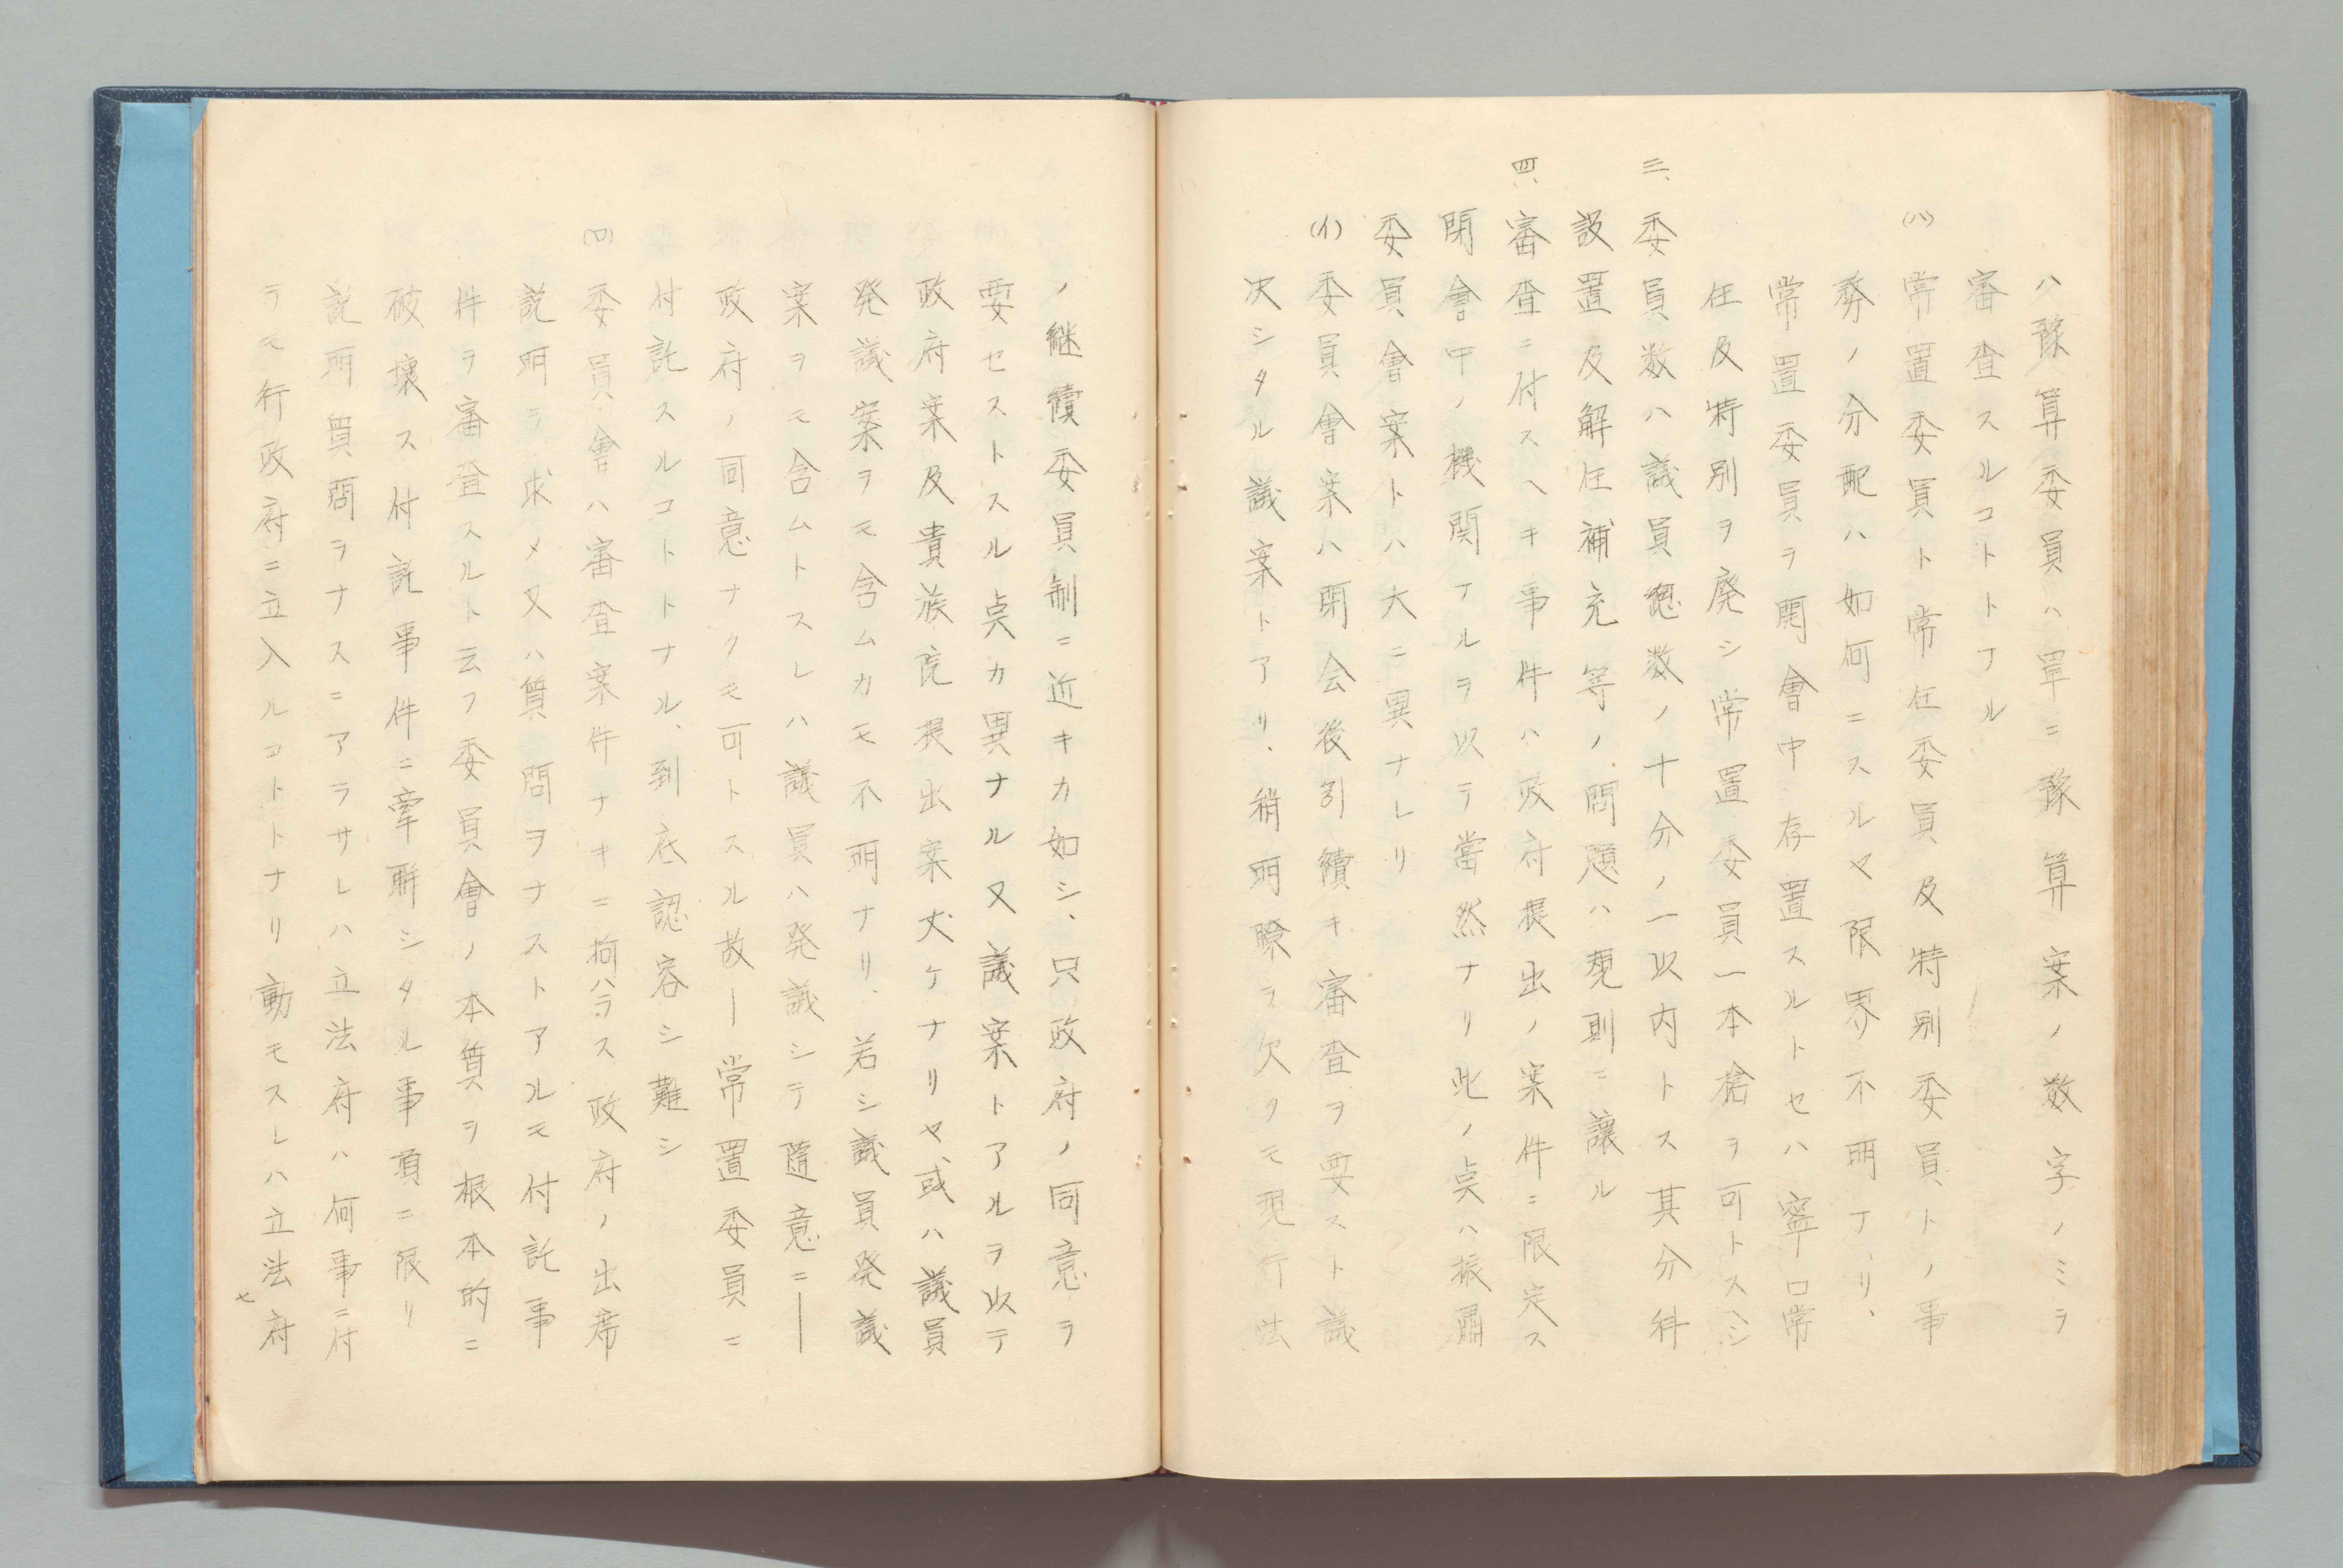 ハ豫算委員ハ単ニ豫算案ノ数字ノミヲ
審査スルコトトナル
(ハ)常置委員ト常任委員及特別委員トノ事
務ノ分配ハ如何ニスルヤ限界不明ナリ、
常置委員ヲ開會中存置スルトセハ寧ロ常
任及特別ヲ廃シ常置委員一本槍ヲ可トスヘシ
三、委員数ハ議員惣数ノ十分ノ一以内トス其分科
設置及解任補充等ノ問題ハ規則ニ譲ル
四、審査ニ付スヘキ事件ハ政府提出ノ案件ニ限定ス
閉會中ノ機関ナルヲ以テ當然ナリ此ノ点ハ振粛
委員會案トハ大ニ異ナレリ
(イ)委員會案ハ閉会後引續キ審査ヲ要スト議
決シタル議案トアリ、稍明瞭ヲ欠クモ現行法
ノ継續委員制ニ近キカ如シ、只政府ノ同意ヲ
要セストスル点カ異ナル又議案トアルヲ以テ
政府案及貴族院提出案丈ケナリヤ、或ハ議員
発議案ヲモ含ムカモ不明ナリ、若シ議員発議
案ヲモ含ムトスレハ議員ハ発議シテ隨意ニ―
政府ノ同意ナクモ可トスル故―常置委員ニ
付託スルコトトナル、到底認容シ難シ
(ロ)委員會ハ審査案件ナキニ拘ハラス政府ノ出席
説明ヲ求メ又ハ質問ヲナストアルモ付託事
件ヲ審査スルト云フ委員會ノ本質ヲ根本的ニ
破壊ス付託事件ニ牽聯シタル事項ニ限リ
説明質問ヲナスニアラサレハ立法府ハ何事ニ付
ラモ行政府ニ立入ルコトトナリ動モスレハ立法府
セ